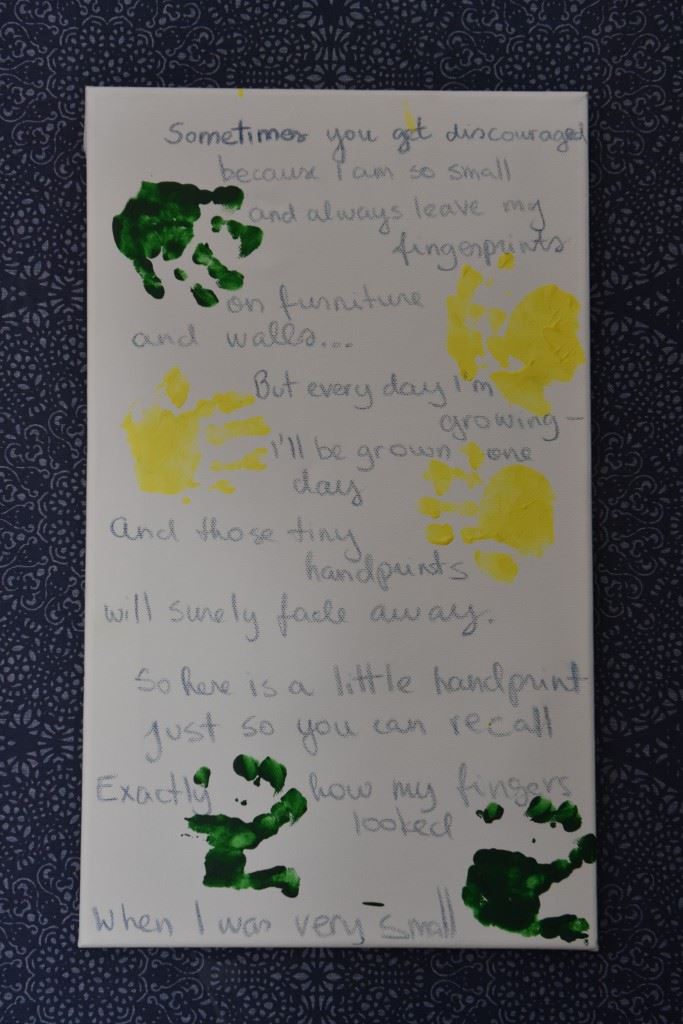 Sometimes you get discouraged
because I am so small
and always leave my
fingerprints
on furniture
and walls...
But every day I'm
growing-
I'll be grown one
day
And those tiny
handprints
will surely fade away.
So here is a little handprint
just so you can recall
Exactly how my fingers
looked
When I was very small